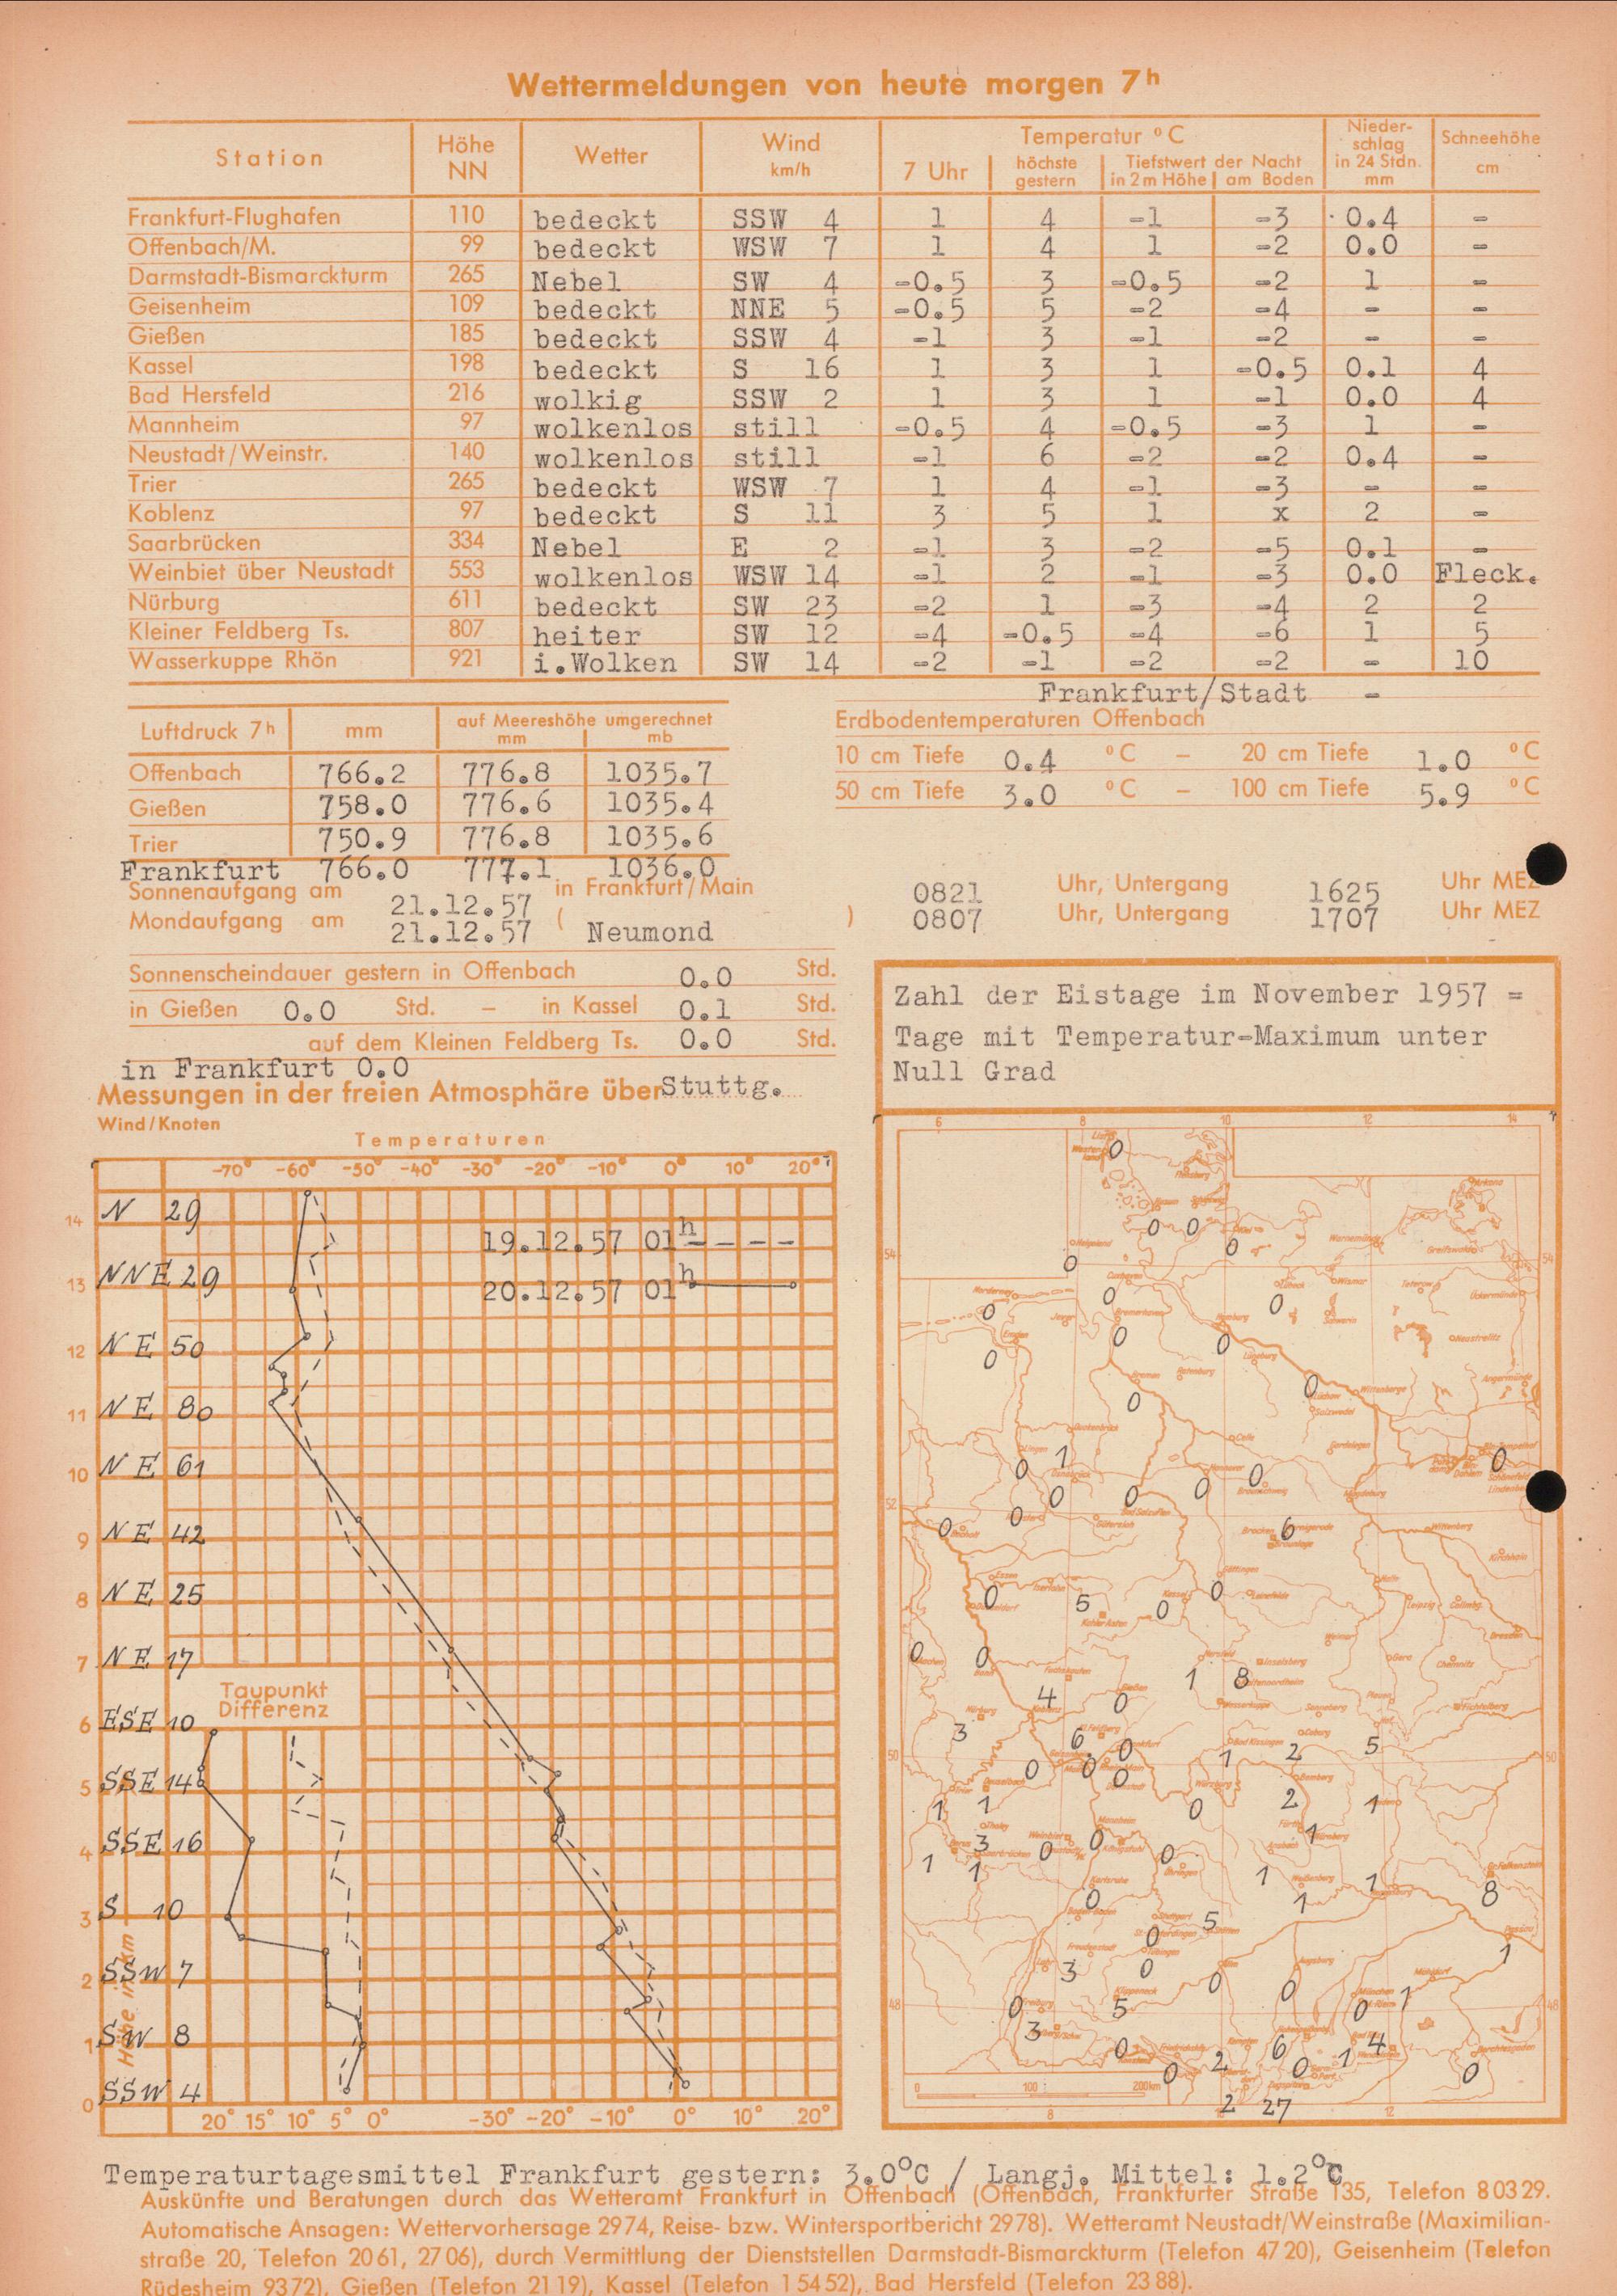 Wettermeldungen von heute morgen 7 h
Station Höhe NN Wetter Wind km/h Temperatur °C Nieder-schlag in 24 Stdn. mm Schneehöhe cm
7 Uhr höchste gestern Tiefstwert der Nacht in 2 m Höhe am Boden
Frankfurt-Flughafen 110 bedeckt SSW 4 1 4 -1 -3 0.4 -
Offenbach/M. 99 bedeckt WSW 7 1 4 1 -2 0.0 -
Darmstadt-Bismarckturm 265 Nebel SW 4 -0.5 3 -0.5 -2 1 -
Geisenheim 109 bedeckt NNE 5 -0.5 5 -2 -4 - -
Gießen 185 bedeckt SSW 4 -1 3 -1 -2 - -
Kassel 198 bedeckt S 16 1 3 1 -0.5 0.1 4
Bad Hersfeld 216 wolkig SSW 2 1 3 1 -1 0.0 4
Mannheim 97 wolkenlos still -0.5 4 -0.5 -3 1 -
Neustadt/Weinstr. 140 wolkenlos still -1 6 -2 -2 0.4 -
Trier 265 bedeckt WSW 7 1 4 -1 -3 - -
Koblenz 97 bedeckt S 11 3 5 1 x 2 -
Saarbrücken 334 Nebel E 2 -1 3 -2 -5 0.1 -
Weinbiet über Neustadt 553 wolkenlos WSW 14 -1 2 -1 -3 0.0 Fleck.
Nürburg 611 bedeckt SW 23 -2 1 -3 -4 2 2
Kleiner Feldberg Ts. 807 heiter SW 12 -4 -0.5 -4 -6 1 5
Wasserkuppe Rhön 921 i.Wolken SW 14 -2 -1 -2 -2 - 10
Frankfurt/Stadt -
Luftdruck 7 h mm auf Meereshöhe umgerechnet mm mb
Offenbach 766.2 776.8 1035.7
Gießen 758.0 776.6 1035.4
Trier 750.9 776.8 1035.6
Frankfurt 766.0 777.1 1036.0
Erdbodentemperaturen Offenbach
10 cm Tiefe 0.4 °C – 20 cm Tiefe 1.0 °C
50 cm Tiefe 3.0 °C – 100 cm Tiefe 5.9 °C
Sonnenaufgang am 21.12.57 in Frankfurt/Main 0821 Uhr, Untergang 1625 Uhr MEZ
Mondaufgang am 21.12.57 ( Neumond ) 0807 Uhr, Untergang 1707 Uhr MEZ
Sonnenscheindauer gestern in Offenbach 0.0 Std.
in Gießen 0.0 Std. – in Kassel 0.1 Std.
auf dem Kleinen Feldberg Ts. 0.0 Std.
in Frankfurt 0.0
Zahl der Eistage im November 1957 =
Tage mit Temperatur-Maximum unter
Null Grad
Messungen in der freien Atmosphäre über Stuttg.
Wind/Knoten
Temperaturen
-70° -60° -50° -40° -30° -20° -10° 0° 10° 20°
14 N 29
19.12.57 01h - - - -
13 NNE 29
20.12.57 01h
12 NE 50
11 NE 80
10 NE 61
9 NE 42
8 NE 25
7 NE 17
Taupunkt
Differenz
6 ESE 10
5 SSE 14
4 SSE 16
3 S 10
2 SSW 7
1 SW 8
0 SSW 4
Höhe in km
20° 15° 10° 5° 0° -30° -20° -10° 0° 10° 20°
6 8 10 12 14
54 54
52
50 50
48 48
0 100 200km
8 10 12
Temperaturtagesmittel Frankfurt gestern: 3.0°C / Langj. Mittel: 1.2°C
Auskünfte und Beratungen durch das Wetteramt Frankfurt in Offenbach (Offenbach, Frankfurter Straße 135, Telefon 8 03 29.
Automatische Ansagen: Wettervorhersage 29 74, Reise- bzw. Wintersportbericht 29 78). Wetteramt Neustadt/Weinstraße (Maximilian-
straße 20, Telefon 20 61, 27 06), durch Vermittlung der Dienststellen Darmstadt-Bismarckturm (Telefon 47 20), Geisenheim (Telefon
Rüdesheim 93 72), Gießen (Telefon 21 19), Kassel (Telefon 1 54 52), Bad Hersfeld (Telefon 23 88).